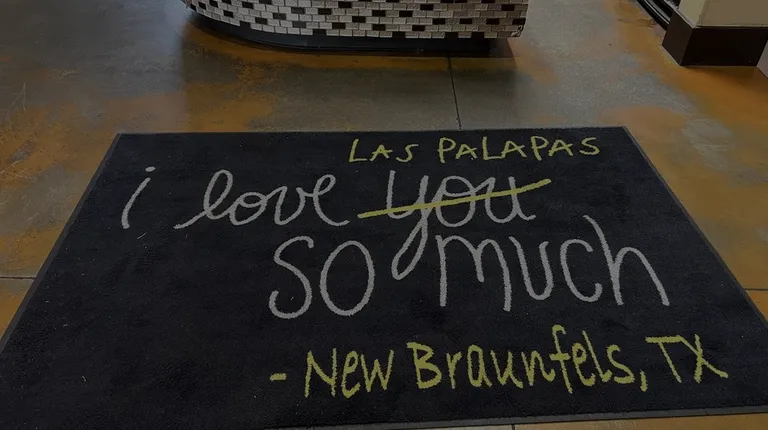 LAS PALAPAS
i love you
so much
- New Braunfels, TX